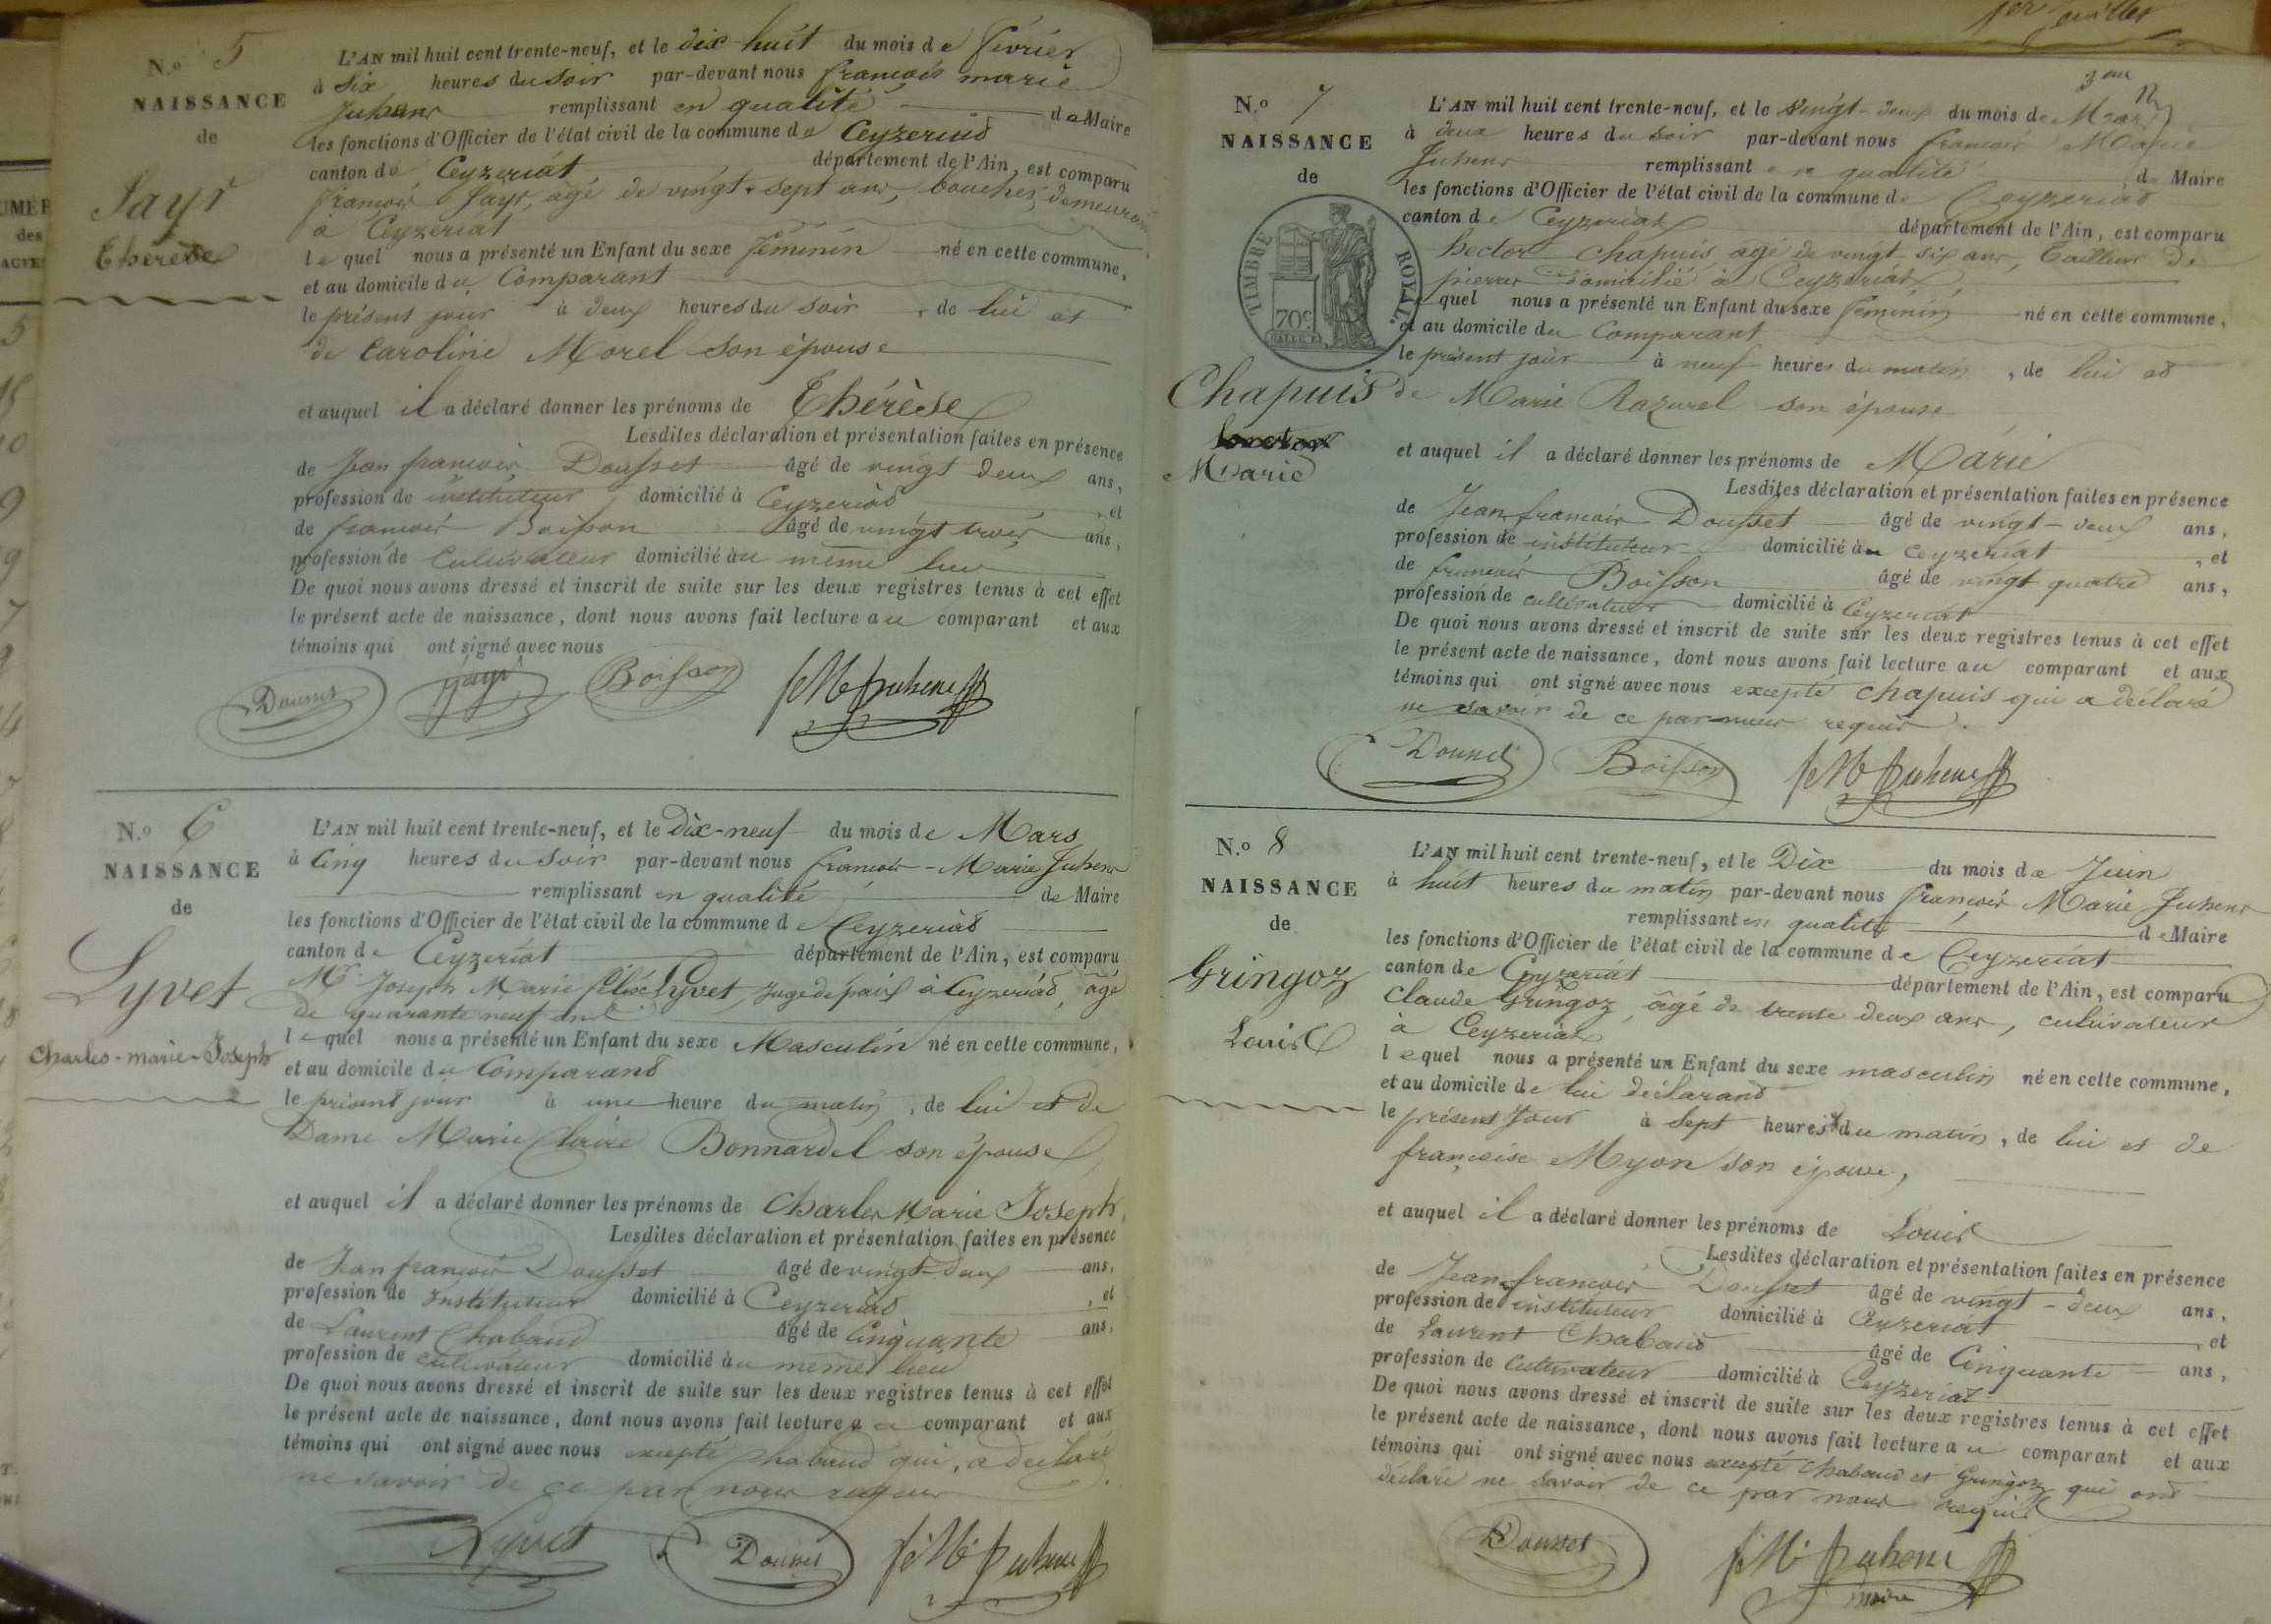 N.o 5
NAISSANCE
de
Jayr
Thérèse
L'AN mil huit cent trente-neuf, et le dix-huit du mois de février
à six heures du soir par-devant nous françois marie
Juhene remplissant en qualité de Maire
les fonctions d'Officier de l'état civil de la commune de Ceyzeriat
canton de Ceyzeriat département de l'Ain, est comparu
françois Jayr, âgé de vingt-sept ans, boucher, demeurant
à Ceyzeriat
lequel nous a présenté un Enfant du sexe féminin né en cette commune,
et au domicile du Comparant
le présent jour à deux heures du soir, de lui et
de Caroline Morel son épouse
et auquel il a déclaré donner les prénoms de Thérèse
Lesdites déclaration et présentation faites en présence
de Jean françois Dousset âgé de vingt deux ans,
profession de instituteur, domicilié à Ceyzeriat, et
de françois Boisson âgé de vingt trois ans,
profession de Cultivateur domicilié au même lieu
De quoi nous avons dressé et inscrit de suite sur les deux registres tenus à cet effet
le présent acte de naissance, dont nous avons fait lecture au comparant et aux
témoins qui ont signé avec nous
Dousset Jayr Boisson f M Juhene
N.o 6
NAISSANCE
de
Lyvet
Charles-marie-Joseph
L'AN mil huit cent trente-neuf, et le Dix-neuf du mois de Mars
à Cinq heures du Soir par-devant nous françois-Marie Juhene
remplissant en qualité de Maire
les fonctions d'Officier de l'état civil de la commune de Ceyzeriat
canton de Ceyzeriat département de l'Ain, est comparu
Mr. Joseph Marie félix Lyvet, juge de paix à Ceyzeriat, âgé
de quarante neuf ans
lequel nous a présenté un Enfant du sexe Masculin né en cette commune,
et au domicile du Comparant
le présent jour à une heure du matin, de lui et de
Dame Marie Claire Bonnardel son épouse
et auquel il a déclaré donner les prénoms de Charles Marie Joseph,
Lesdites déclaration et présentation faites en présence
de Jean françois Dousset âgé de vingt-deux ans,
profession de Instituteur domicilié à Ceyzeriat, et
de Laurent Chabaud âgé de Cinquante ans,
profession de cultivateur domicilié au même lieu
De quoi nous avons dressé et inscrit de suite sur les deux registres tenus à cet effet
le présent acte de naissance, dont nous avons fait lecture au comparant et aux
témoins qui ont signé avec nous excepté Chabaud qui, a déclaré
ne savoir de ce par nous requis
Lyvet Dousset f M Juhene
N.o 7
NAISSANCE
de
TIMBRE ROYAL.
70c
Chapuis
Marie
L'AN mil huit cent trente-neuf, et le vingt-deux du mois de Mars
à deux heures du soir par-devant nous françois Marie
Juhene remplissant en qualité de Maire
les fonctions d'Officier de l'état civil de la commune de Ceyzeriat
canton de Ceyzeriat département de l'Ain, est comparu
hector Chapuis, agé de vingt six ans, tailleur de
pierres domicilié à Ceyzeriat,
lequel nous a présenté un Enfant du sexe féminin né en cette commune,
et au domicile du Comparant
le présent jour à neuf heures du matin, de lui et
de Marie Razurel son épouse
et auquel il a déclaré donner les prénoms de Marie
Lesdites déclaration et présentation faites en présence
de Jean françois Dousset âgé de vingt-deux ans,
profession de instituteur domicilié à Ceyzeriat, et
de françois Boisson âgé de vingt quatre ans,
profession de cultivateur domicilié à Ceyzeriat
De quoi nous avons dressé et inscrit de suite sur les deux registres tenus à cet effet
le présent acte de naissance, dont nous avons fait lecture au comparant et aux
témoins qui ont signé avec nous excepté Chapuis qui a déclaré
ne savoir de ce par nous requis.
Dousset Boisson f M Juhene
N.o 8
NAISSANCE
de
Gringoz
Louis
L'AN mil huit cent trente-neuf, et le Dix du mois de Juin
à huit heures du matin par-devant nous françois Marie Juhene
remplissant en qualité de Maire
les fonctions d'Officier de l'état civil de la commune de Ceyzeriat
canton de Ceyzeriat département de l'Ain, est comparu
Claude Gringoz, âgé de trente deux ans, cultivateur
à Ceyzeriat
lequel nous a présenté un Enfant du sexe masculin né en cette commune,
et au domicile de lui déclarant
le présent Jour à sept heures du matin, de lui et de
françoise Myon son épouse,
et auquel il a déclaré donner les prénoms de Louis
Lesdites déclaration et présentation faites en présence
de Jean françois Dousset âgé de vingt-deux ans,
profession de instituteur domicilié à Ceyzeriat et
de Laurent Chabaud âgé de Cinquante ans,
profession de Cultivateur domicilié à Ceyzeriat
De quoi nous avons dressé et inscrit de suite sur les deux registres tenus à cet effet
le présent acte de naissance, dont nous avons fait lecture au comparant et aux
témoins qui ont signé avec nous excepté Chabaud et Gringoz qui ont
déclaré ne savoir de ce par nous requis
Dousset f M Juhene
maire